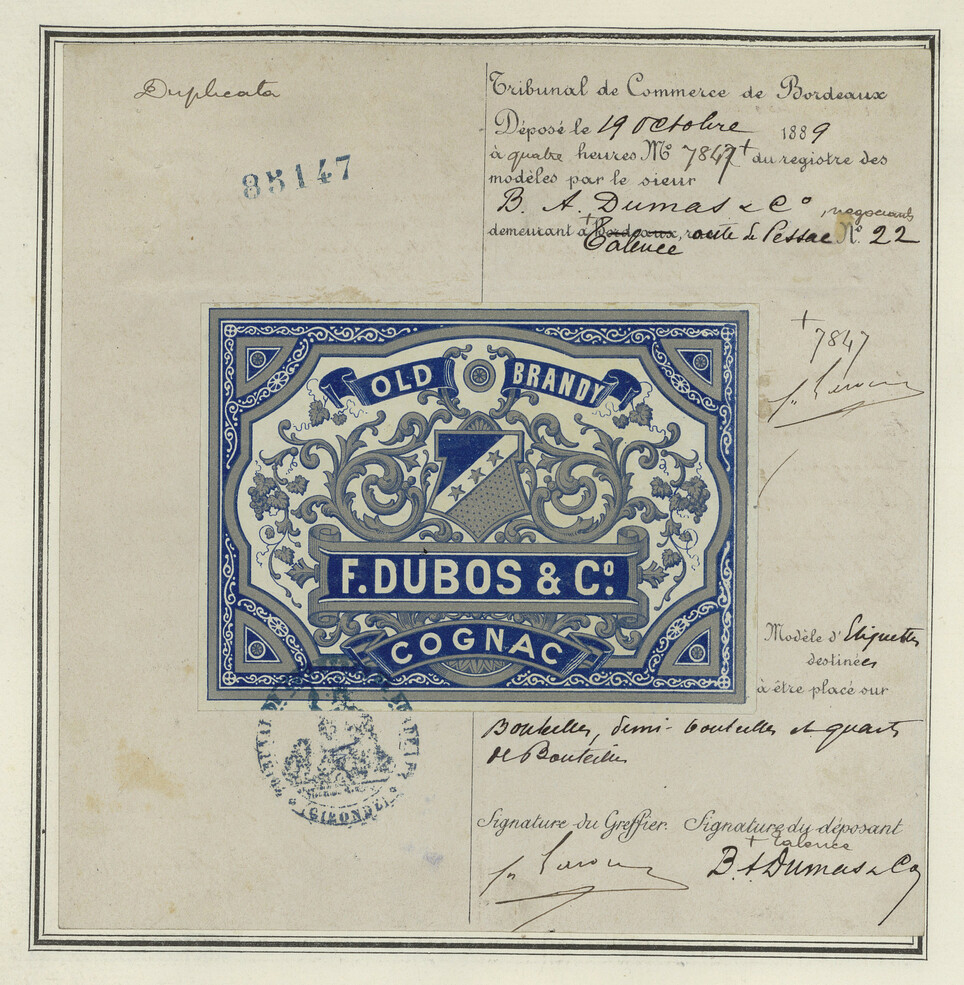 Duplicata
85147
Tribunal de Commerce de Bordeaux
Déposé le 19 Octobre 1889
à quatre heures No 7847 + du registre des
modèles par le sieur
B. A. Dumas & Co, négociants
demeurant à + Bordeaux, route de Pessac No. 22
Talence
+
7847
OLD BRANDY
F. DUBOS & Co.
COGNAC
Modèle d'Etiquettes
destinées
à être placé sur
Bouteilles, demi-bouteilles et quarts
de Bouteilles
TRIBUNAL DE
(GIRONDE)
Signature du Greffier. Signature du déposant
+ Talence
B. A Dumas & Co